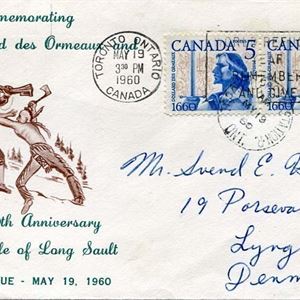 memorating
d des Ormeaux and
TORONTO ONTARIO
MAY 19
3 30 PM
1960
CANADA
CANADA 5
DOLLARD DES ORMEAUX
1660
1660
AND GIVE
Mr. Svend E.
19
Lyng
Denm
th Anniversary
le of Long Sault
UE - MAY 19, 1960